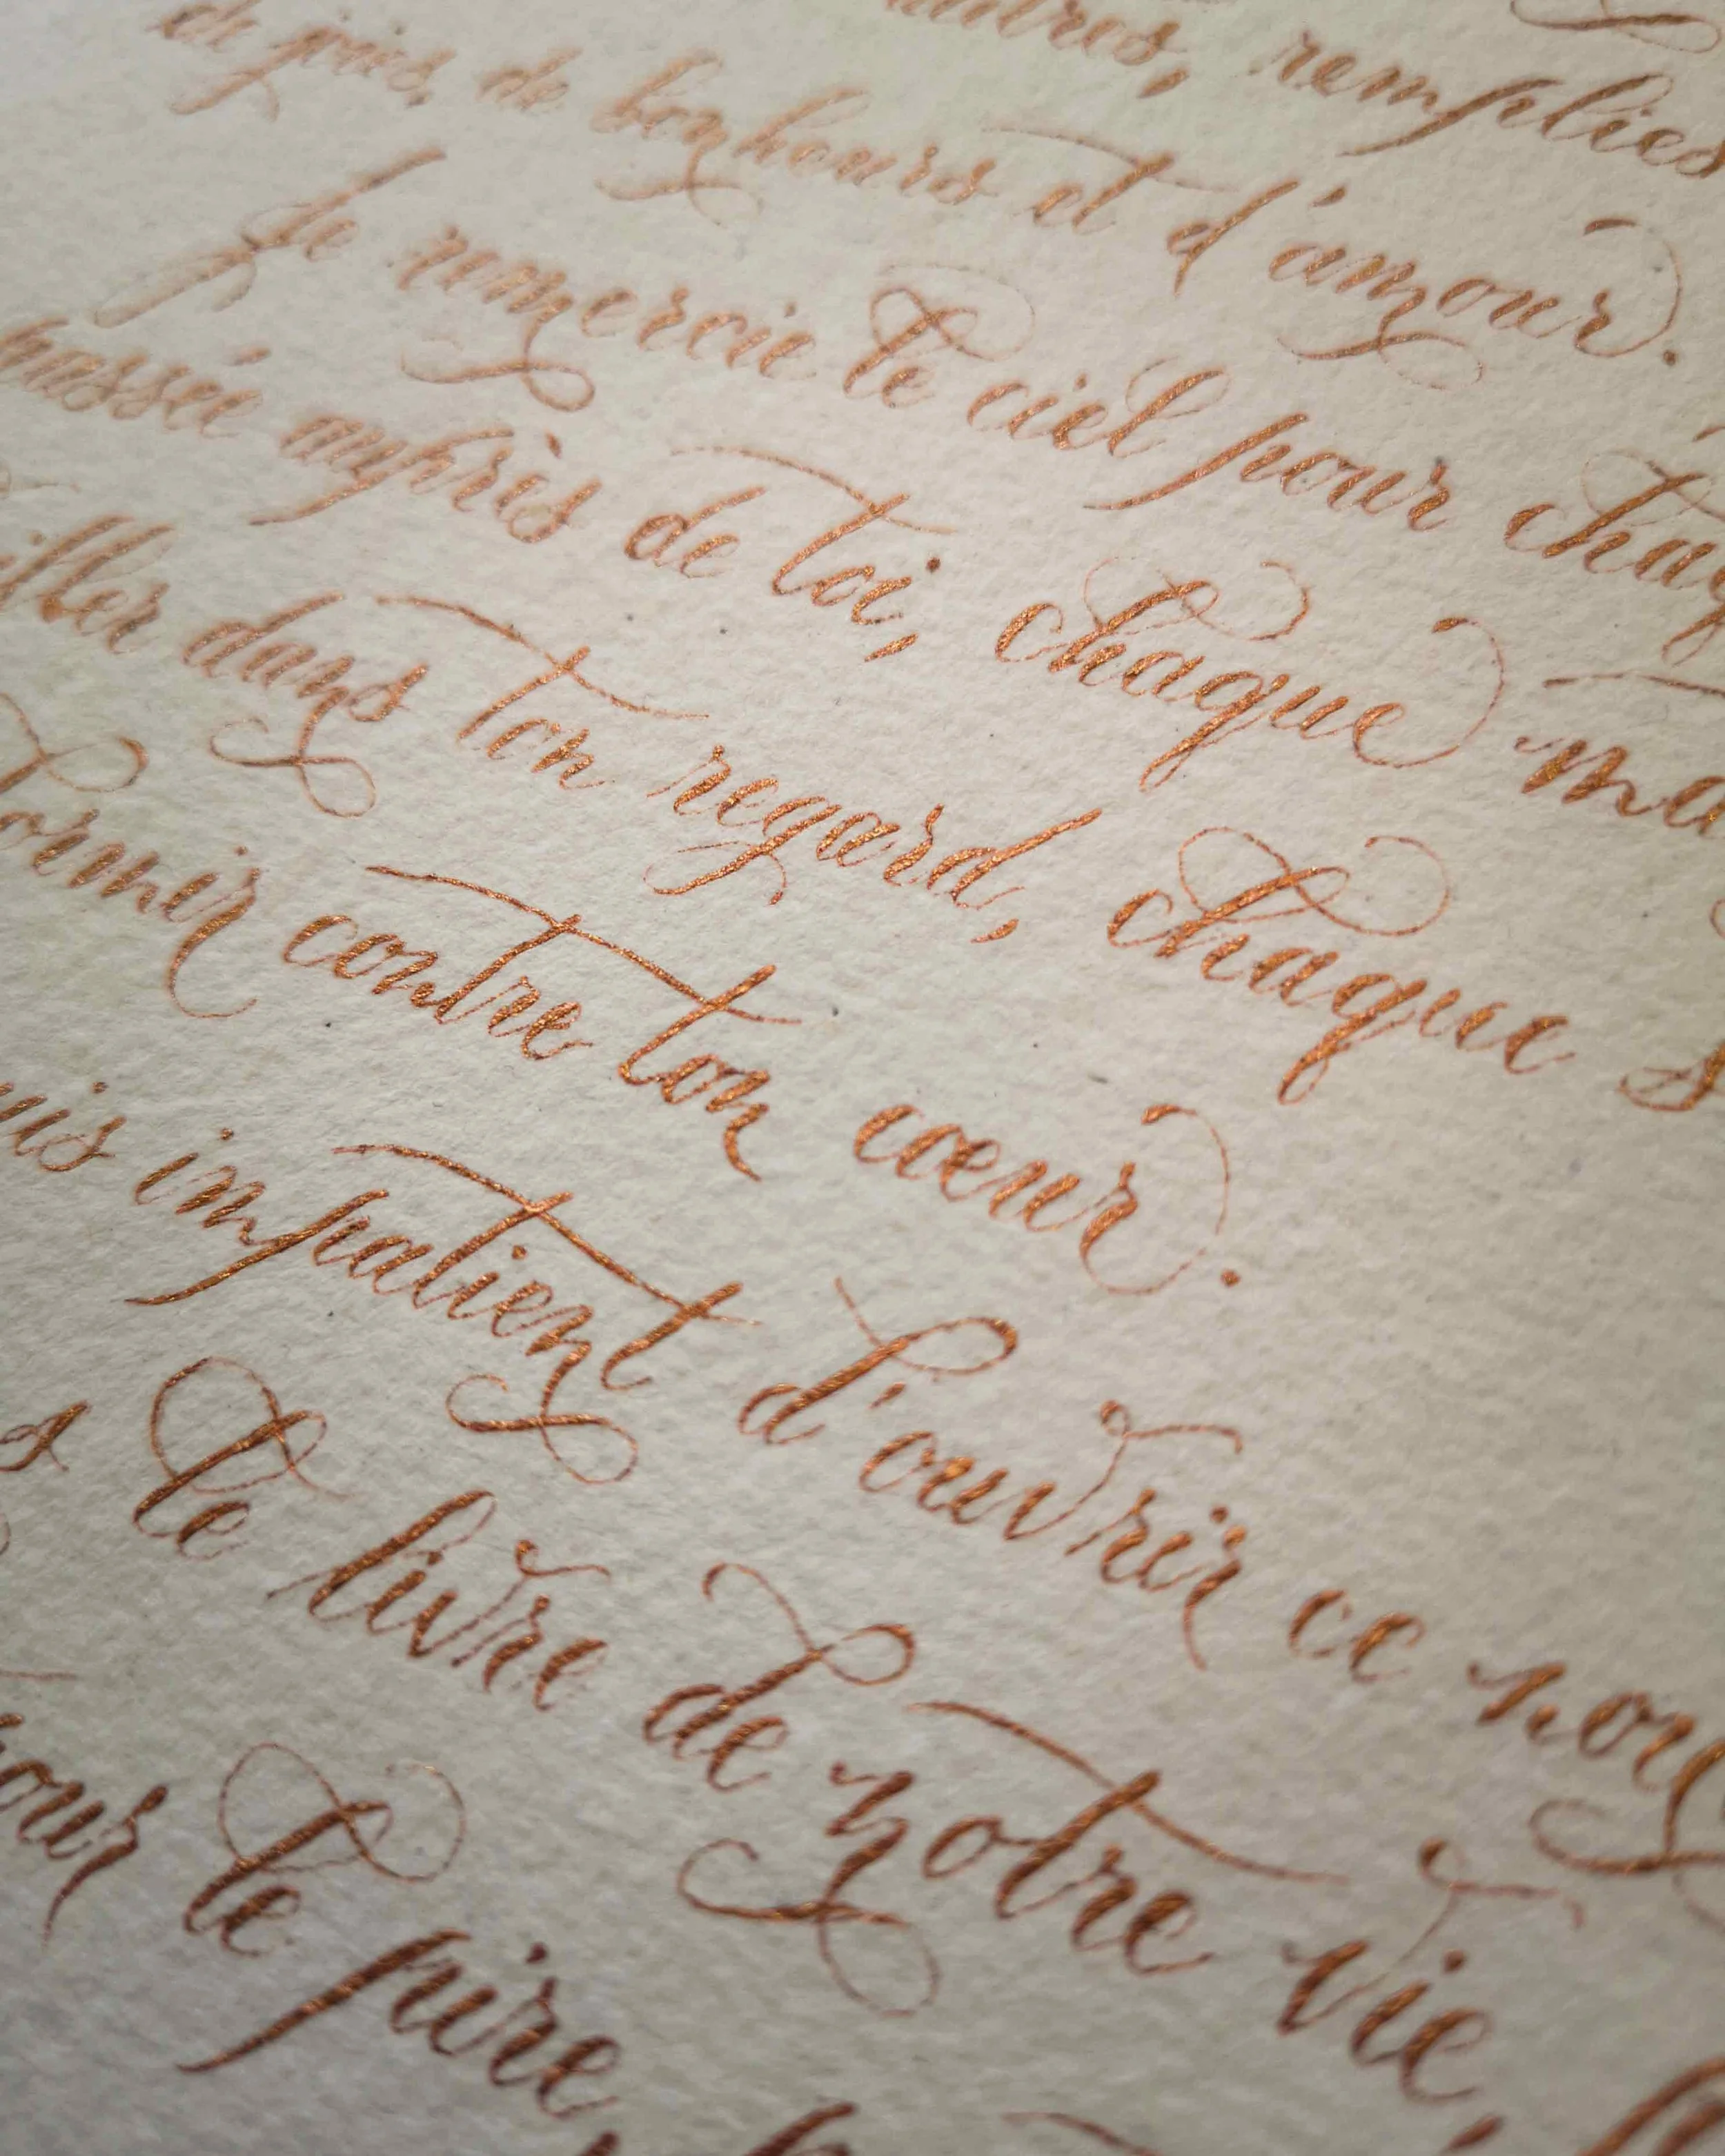 remplies
de joies, de bonheurs et d'amour.
Je remercie le ciel pour chaq
passée auprès de toi, chaque ma
iller dans ton regard, chaque s
dormir contre ton cœur.
uis impatient d'ouvrir ce nou
le livre de notre vie,
pour le pire,